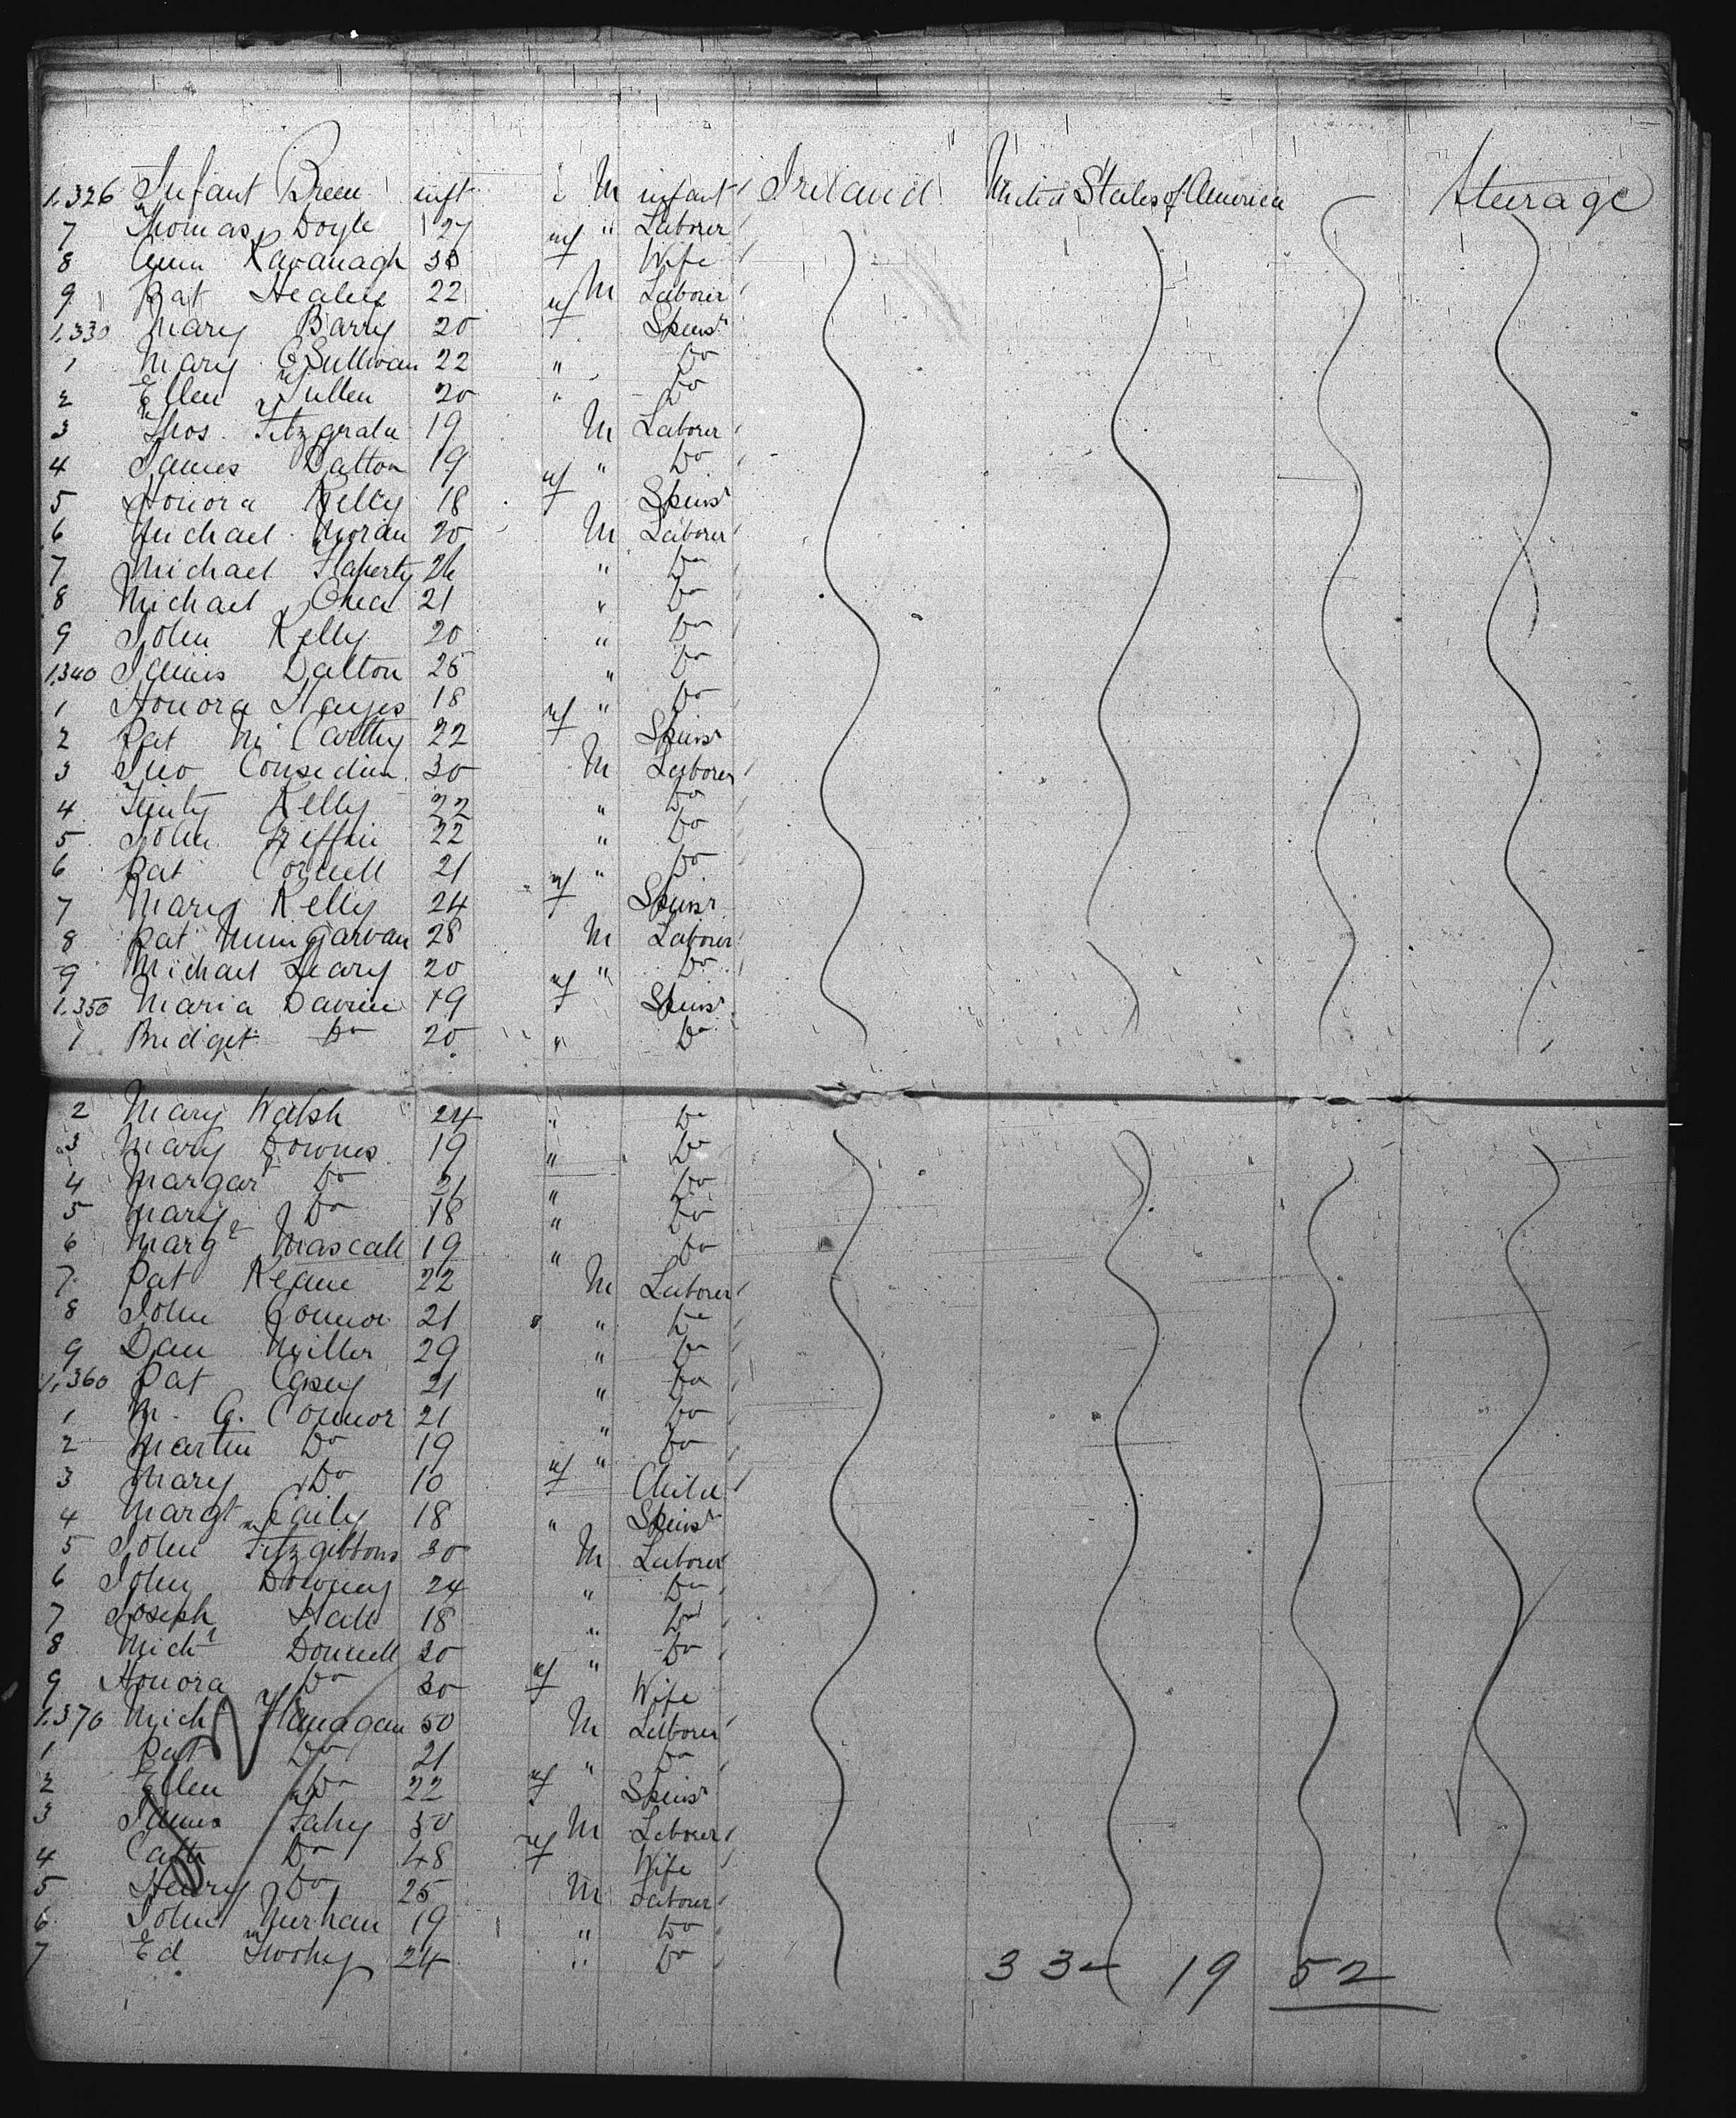 1,326 Infant Breen inft M infant Ireland United States of America Steerage
7 Thomas Doyle 27 " Laborer
8 Ann Kavanagh f Wife
9 Pat Healey 22 M Laborer
1,330 Mary Barry 20 f Spinsr
1 Mary OSullivan 22 " Do
2 Ellen 20 " Do
3 Thos. Fitzgerald 19 M Laborer
4 James Dalton 19 " Do
5 Honora Kelly 18 f Spinsr
6 Michael Moran 20 M Laborer
7 Michael Flaherty " Do
8 Michael 21 " Do
9 John Kelly 20 " Do
1,340 James Dalton 25 " Do
1 Honora Hayes 18 " Do
2 Pat McCarthy 22 f Spinsr
3 Jno Considine 30 M Laborer
4 Kelly 22 " Do
5 John Griffin 22 " Do
6 Pat Connell 21 " Do
7 Mary Kelly 24 f Spinsr
8 Pat 28 M Laborer
9 Michael Leary 20 " Do
1,350 Maria 19 f Spinsr
1 Bridget Do 20 " Do
2 Mary Walsh 24 " Do
3 Mary Downes 19 " Do
4 Margart Do 21 " Do
5 Mary Do 18 " Do
6 Margt Mascall 19 " Do
7 Pat Keane 22 M Laborer
8 John Connor 21 " Do
9 Dan Miller 29 " Do
1,360 Pat Casey 21 " Do
1 M. A. Connor 21 " Do
2 Martin Do 19 " Do
3 Mary Do 10 f Child
4 Margt 18 " Spinsr
5 John Fitzgibbons 30 M Laborer
6 John Downey 24 " Do
7 Joseph Hall 18 " Do
8 Michl Donnell 30 " Do
9 Honora Do 30 f Wife
1,370 Michl Flanagan 50 M Laborer
1 Pat Do 21 " Do
2 Ellen Do 22 f Spinsr
3 James Fahy 50 M Laborer
4 Cath Do 48 f Wife
5 Henry Do 25 M Laborer
6 John 19 " Do
7 Ed Twohey 24 " Do
33 19 52